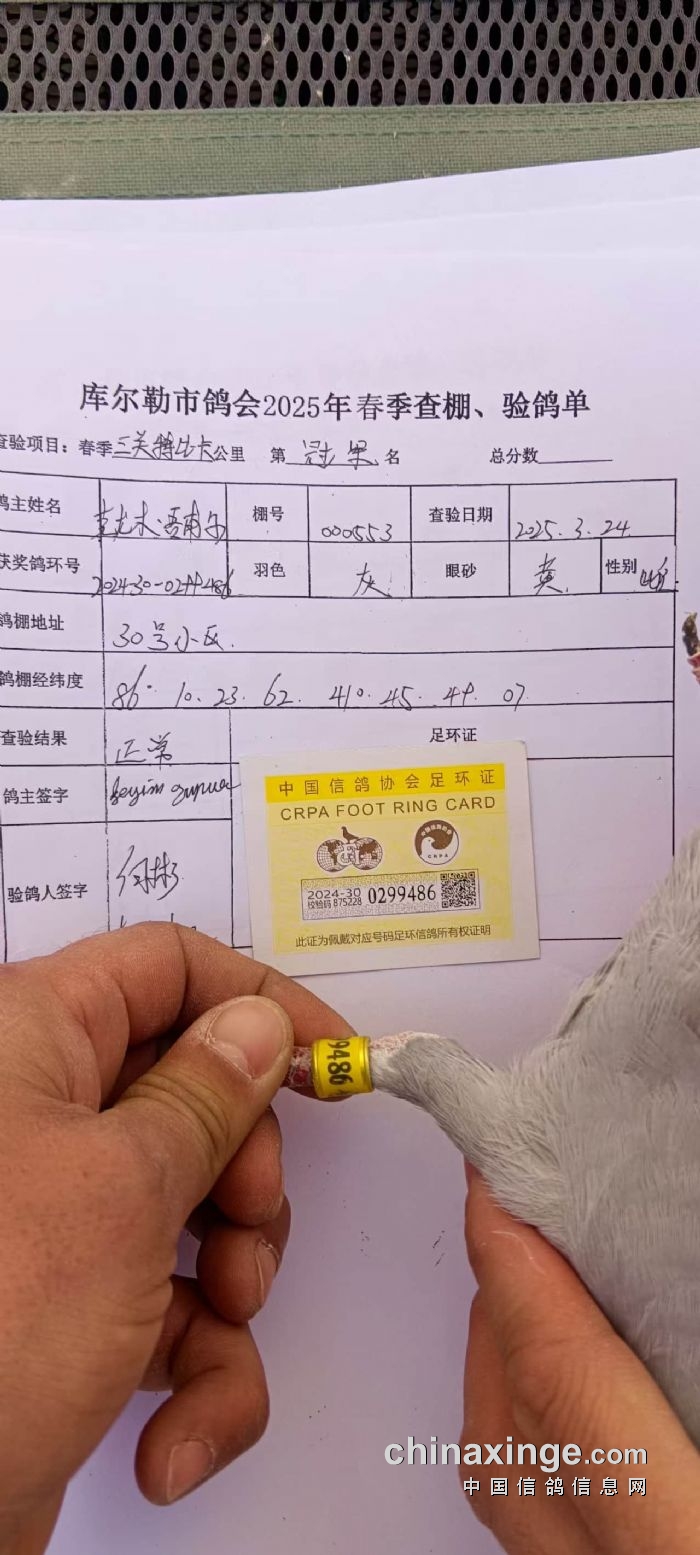 库尔勒市鸽会2025年春季查棚、验鸽单
查验项目：春季三关特比卡公里 第 冠军 名 总分数
鸽主姓名 吾甫尔 棚号 000553 查验日期 2025.3.24
获奖鸽环号 羽色 灰 眼砂 黄 性别
鸽棚地址 30号小区.
鸽棚经纬度 86° 10. 23. 62. 41°. 45. 49. 07
查验结果 正常 足环证
鸽主签字
验鸽人签字
中国信鸽协会足环证
CRPA FOOT RING CARD
CRPA
2024-30
校验码 875228
0299486
此证为佩戴对应号码足环信鸽所有权证明
9486
chinaxinge.com
中国信鸽信息网